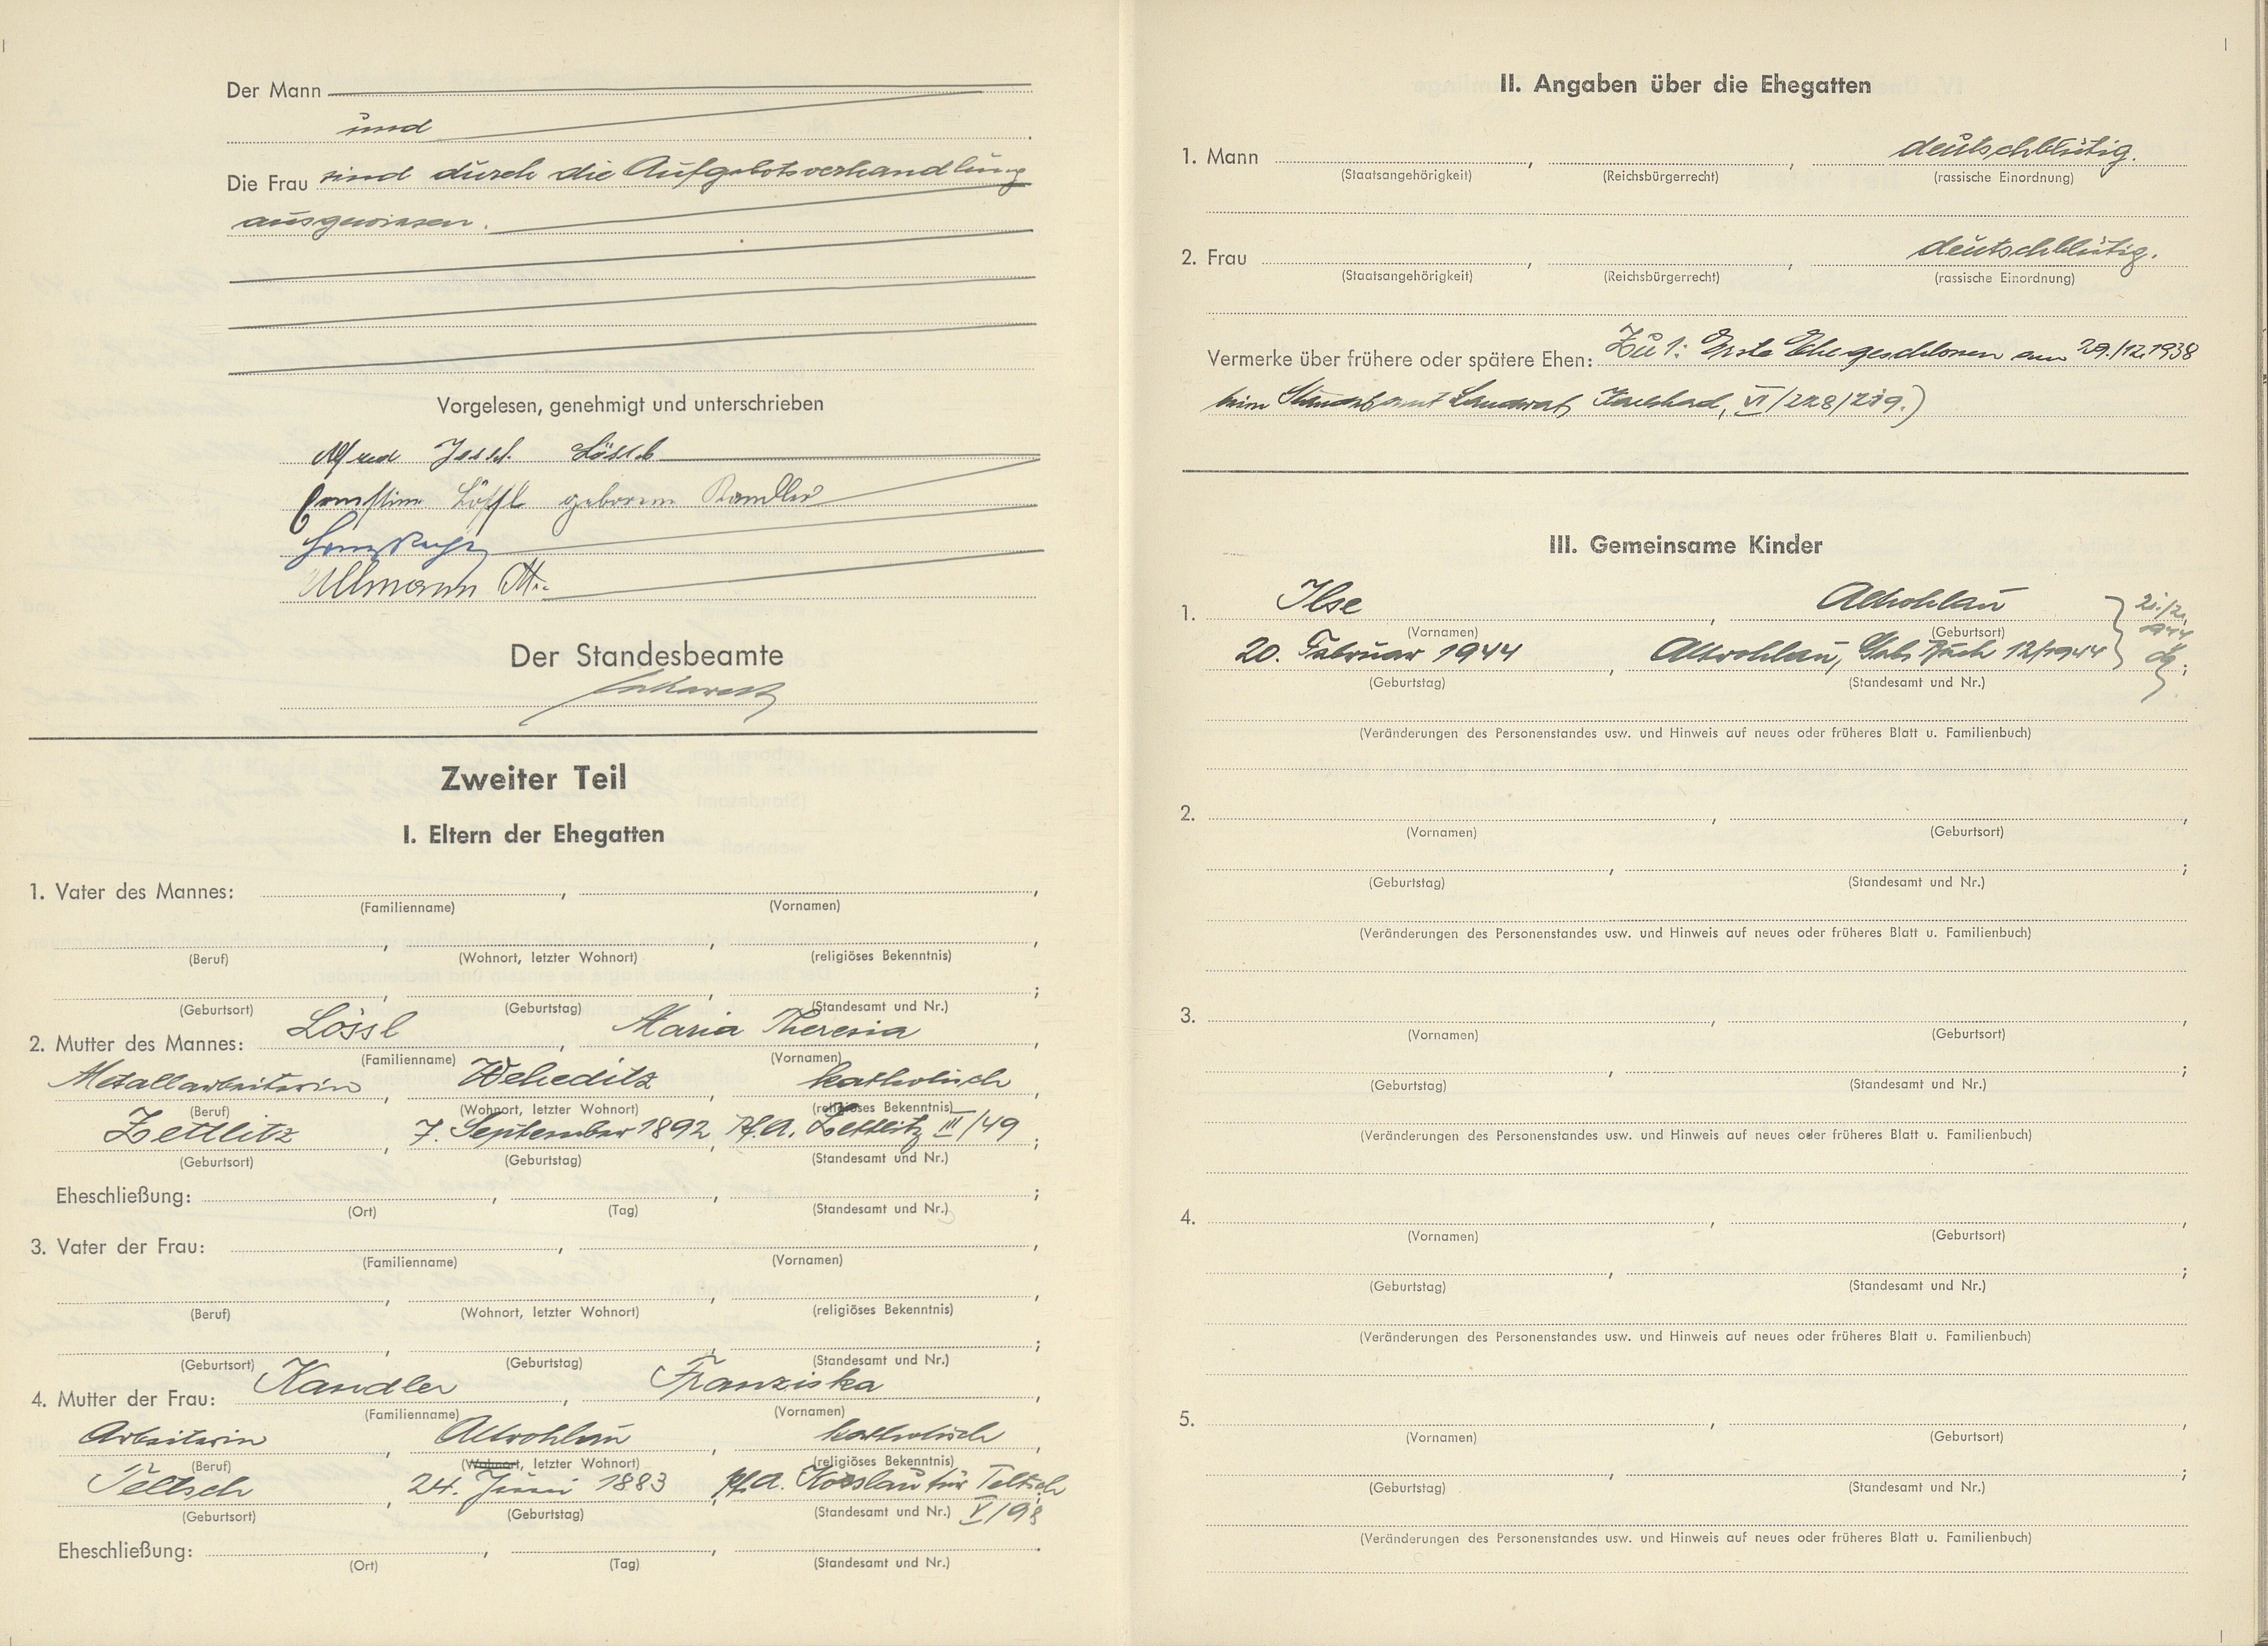 Der Mann
und
Die Frau sind durch die Aufgebotsverhandlung
ausgewiesen.
Vorgelesen, genehmigt und unterschrieben
Alfred Josef Lössl
Ernestine Lößl geborene Kandler
Ullmann
Der Standesbeamte
Zweiter Teil
I. Eltern der Ehegatten
1. Vater des Mannes: , ,
(Familienname) (Vornamen)
, , ,
(Beruf) (Wohnort, letzter Wohnort) (religiöses Bekenntnis)
, , ;
(Geburtsort) (Geburtstag) (Standesamt und Nr.)
2. Mutter des Mannes: Lössl , Maria Theresia ,
(Familienname) (Vornamen)
Metallarbeiterin , Weheditz , katholisch ,
(Beruf) (Wohnort, letzter Wohnort) (religiöses Bekenntnis)
Zettlitz , 7. September 1892 , Pf.A. Zettlitz III/49 ;
(Geburtsort) (Geburtstag) (Standesamt und Nr.)
Eheschließung: , , ;
(Ort) (Tag) (Standesamt und Nr.)
3. Vater der Frau: , ,
(Familienname) (Vornamen)
, , ,
(Beruf) (Wohnort, letzter Wohnort) (religiöses Bekenntnis)
, , ;
(Geburtsort) (Geburtstag) (Standesamt und Nr.)
4. Mutter der Frau: Kandler , Franziska ,
(Familienname) (Vornamen)
Arbeiterin , Altrohlau , katholisch ,
(Beruf) (Wohnort, letzter Wohnort) (religiöses Bekenntnis)
Teltsch , 24. Juni 1883 , Pf.A. Kosslau für Teltsch
(Geburtsort) (Geburtstag) (Standesamt und Nr.) V/98
Eheschließung: , , .
(Ort) (Tag) (Standesamt und Nr.)
II. Angaben über die Ehegatten
1. Mann , , deutschblütig.
(Staatsangehörigkeit) (Reichsbürgerrecht) (rassische Einordnung)
2. Frau , , deutschblütig.
(Staatsangehörigkeit) (Reichsbürgerrecht) (rassische Einordnung)
Vermerke über frühere oder spätere Ehen: Zu 1: Erste Ehe geschlossen am 29./12.1938
beim Standesamt Landrat Karlsbad, VI/228/239.)
III. Gemeinsame Kinder
1. Ilse , Altrohlau
(Vornamen) (Geburtsort)
20. Februar 1944 , Altrohlau, Geb. Buch 12/1944 ;
(Geburtstag) (Standesamt und Nr.)
(Veränderungen des Personenstandes usw. und Hinweis auf neues oder früheres Blatt u. Familienbuch)
2. , ,
(Vornamen) (Geburtsort)
, ;
(Geburtstag) (Standesamt und Nr.)
(Veränderungen des Personenstandes usw. und Hinweis auf neues oder früheres Blatt u. Familienbuch)
3. , ,
(Vornamen) (Geburtsort)
, ;
(Geburtstag) (Standesamt und Nr.)
(Veränderungen des Personenstandes usw. und Hinweis auf neues oder früheres Blatt u. Familienbuch)
4. , ,
(Vornamen) (Geburtsort)
, ;
(Geburtstag) (Standesamt und Nr.)
(Veränderungen des Personenstandes usw. und Hinweis auf neues oder früheres Blatt u. Familienbuch)
5. , ,
(Vornamen) (Geburtsort)
, ;
(Geburtstag) (Standesamt und Nr.)
(Veränderungen des Personenstandes usw. und Hinweis auf neues oder früheres Blatt u. Familienbuch)